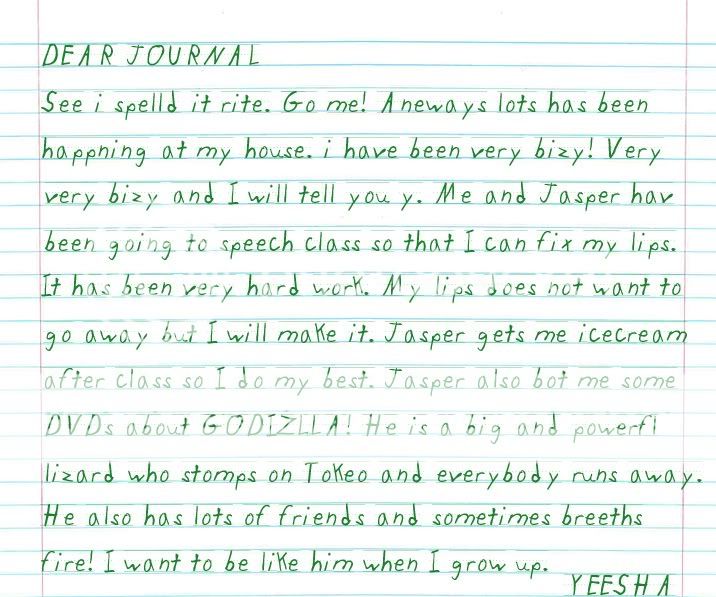 DEAR JOURNAL
See i spelld it rite. Go me! Aneways lots has been
happning at my house. i have been very bizy! Very
very bizy and I will tell you y. Me and Jasper hav
been going to speech class so that I can fix my lips.
It has been very hard work. My lips does not want to
go away but I will make it. Jasper gets me icecream
after class so I do my best. Jasper also bot me some
DVDs about GODIZLLA! He is a big and powerfl
lizard who stomps on Tokeo and everybody runs away.
He also has lots of friends and sometimes breeths
fire! I want to be like him when I grow up.
YEESHA